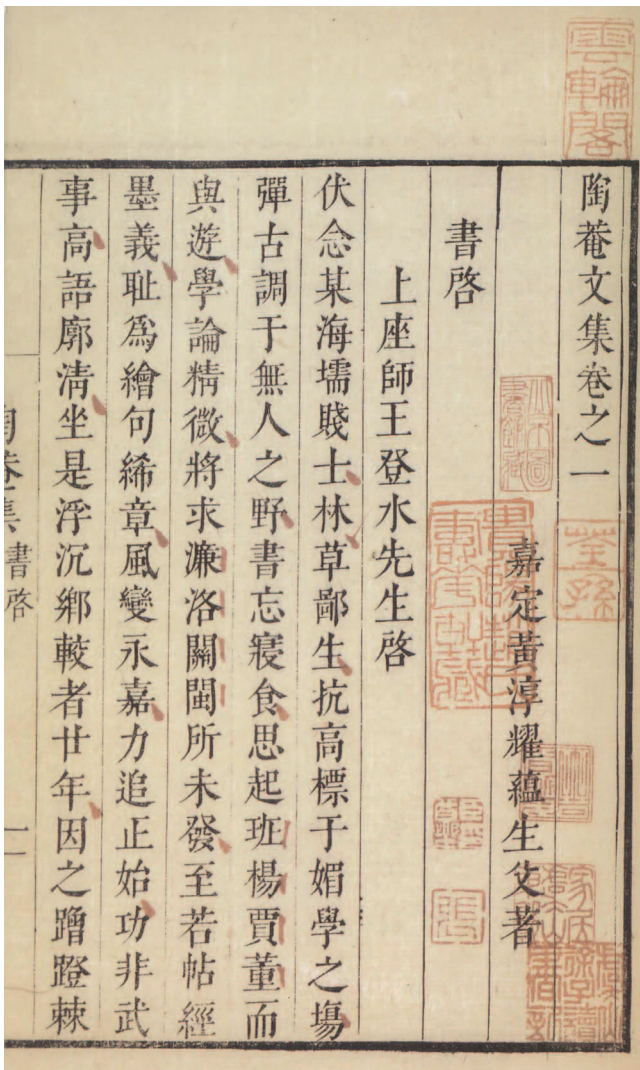 陶菴文集卷之一
嘉定黃淳耀蘊生父著
書啓
上座師王登水先生啓
伏念某海壖賤士林草鄙生抗高標于媢學之塲
彈古調于無人之野書忘寢食思起班楊賈董而
與遊學論精微將求濂洛關閩所未發至若帖經
墨義耻爲繪句絺章風變永嘉力追正始功非武
事高語廓淸坐是浮沉鄉較者廿年因之蹭蹬棘
書啓
一
雲輪閣
荃孫